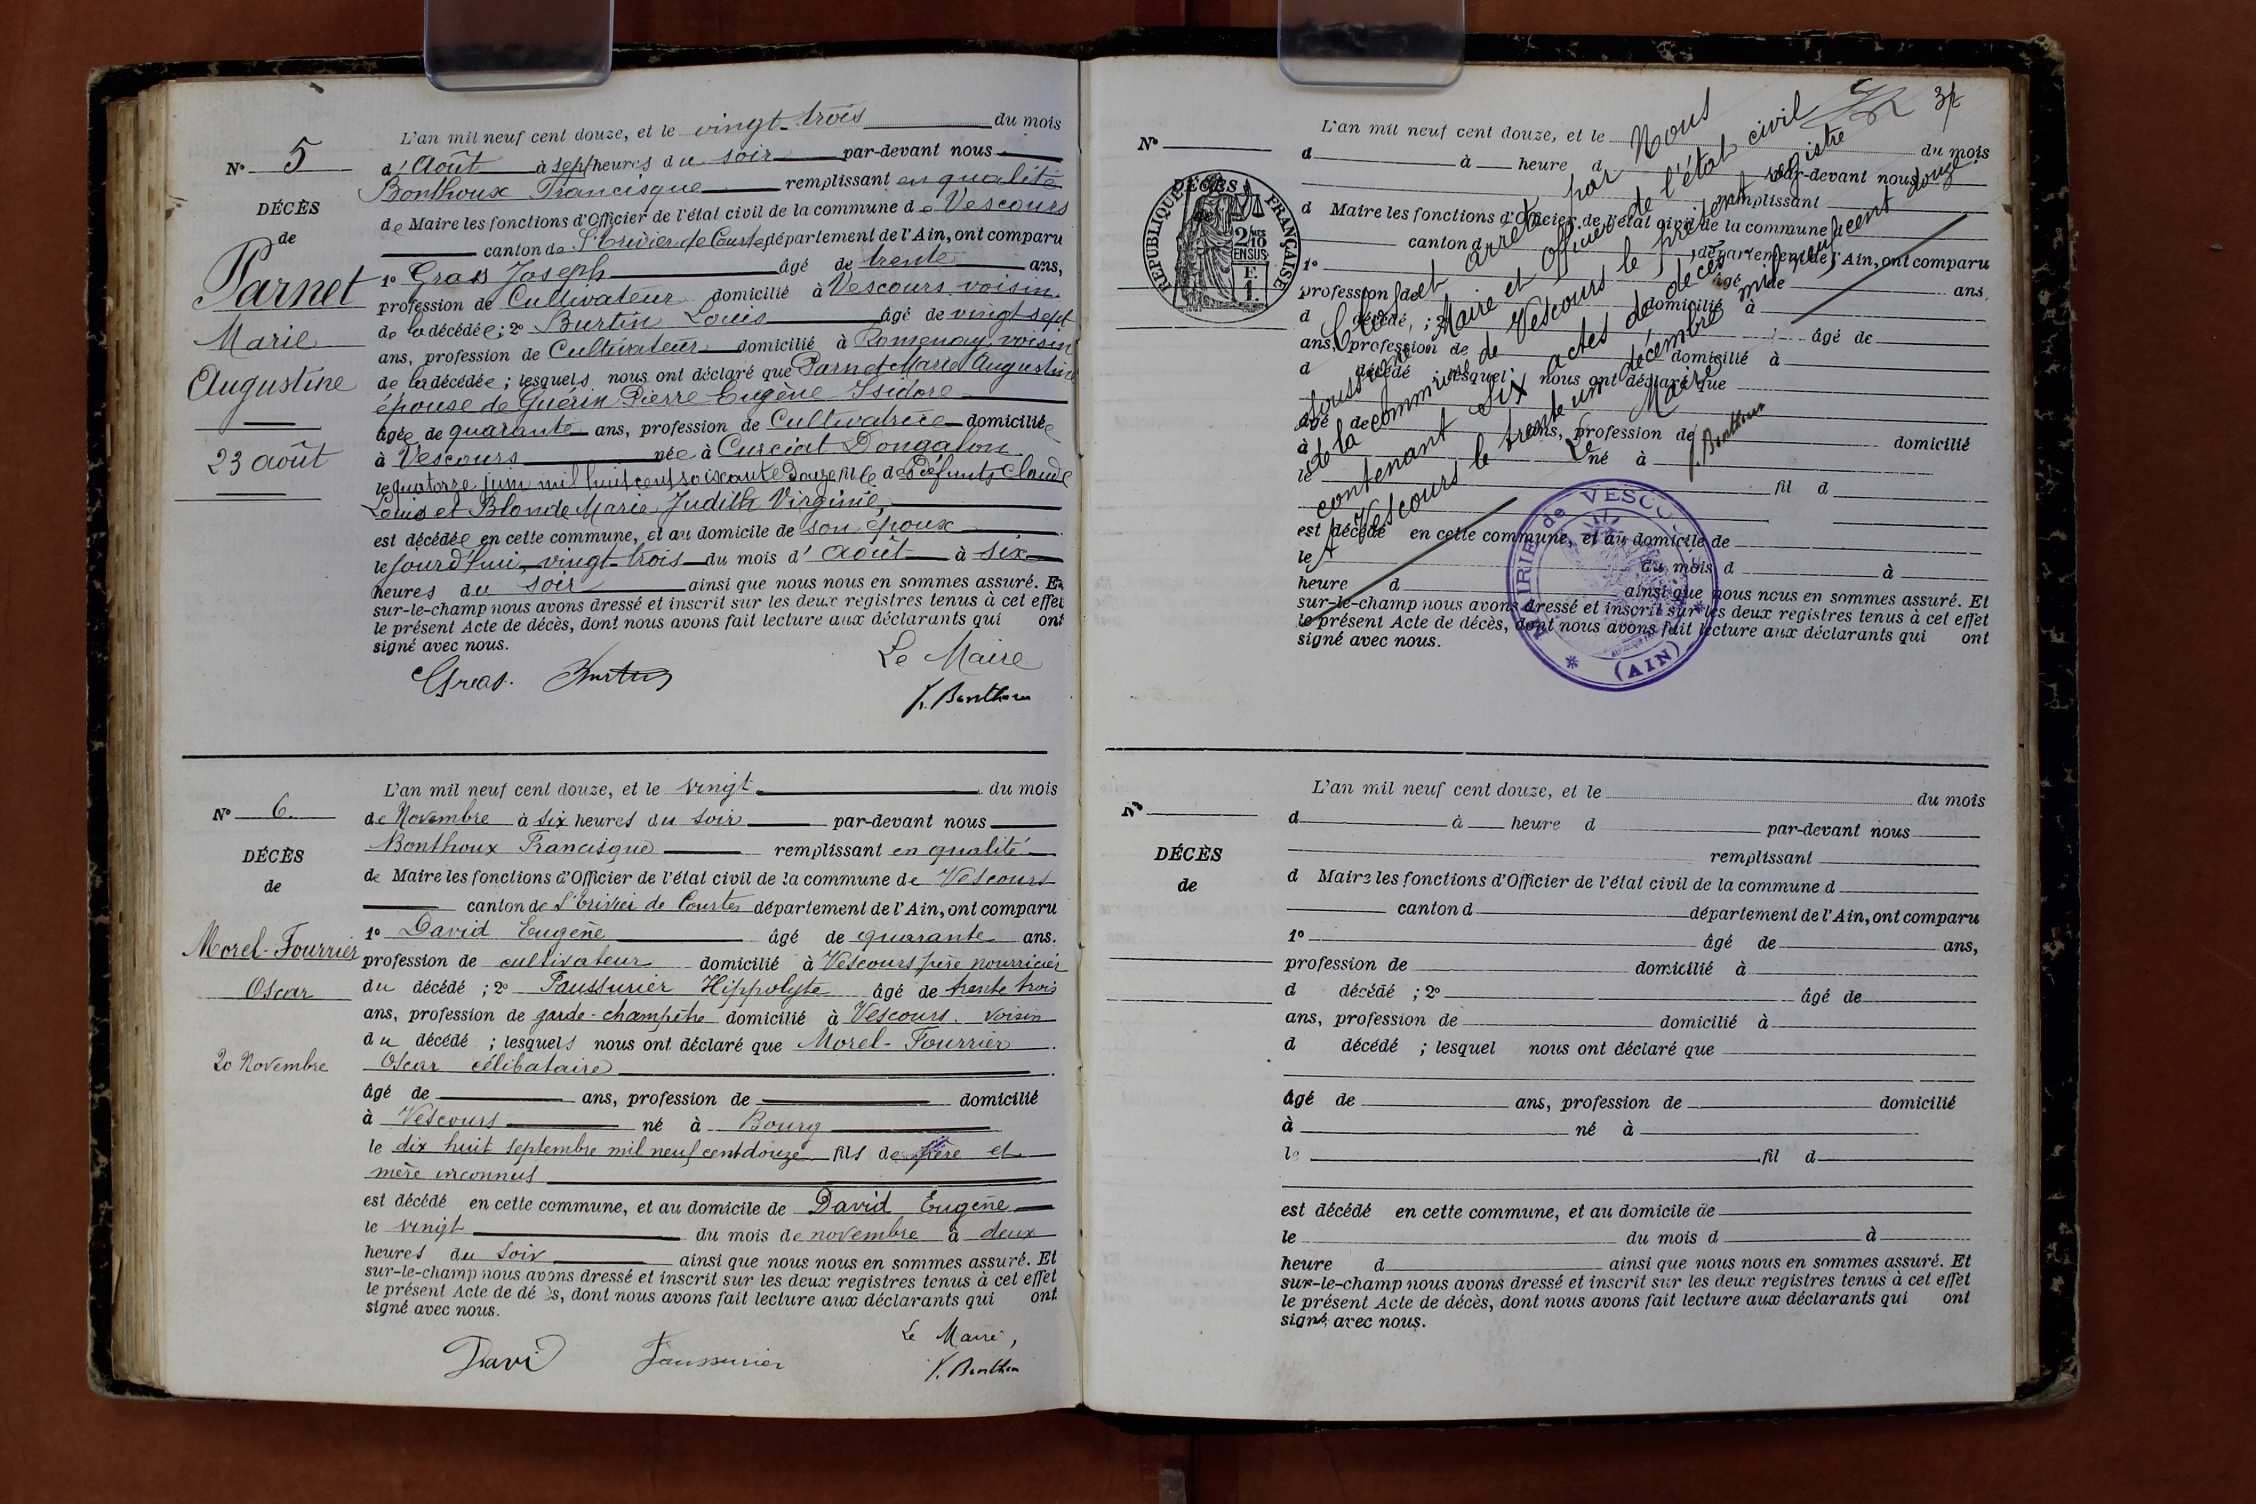 L'an mil neuf cent douze, et le vingt-trois du mois
N° 5 d'Août à sept heures du soir par-devant nous
Bonthoux Francisque remplissant en qualité
DÉCÈS de Maire les fonctions d'Officier de l'état civil de la commune de Vescours
de canton de St Trivier de Courtes département de l'Ain, ont comparu
Parnet 1° Gras Joseph âgé de trente ans,
profession de Cultivateur domicilié à Vescours voisin
Marie de la décédée ; 2° Burtin Louis âgé de vingt sept
ans, profession de Cultivateur domicilié à Romenay, voisin
Augustine de la décédée ; lesquels nous ont déclaré que Parnet Marie Augustine
épouse de Guérin Pierre Eugène Isidore
âgée de quarante ans, profession de Cultivatrice domiciliée
23 août à Vescours née à Curciat Dongalon
le quatorze juin mil huit cent soixante douze fille de défunts Claude
Louis et Blonde Marie Judith Virginie,
est décédée en cette commune, et au domicile de son époux
le jourd'hui, vingt-trois du mois d'août à six
heures du soir ainsi que nous nous en sommes assuré. Et
sur-le-champ nous avons dressé et inscrit sur les deux registres tenus à cet effet
le présent Acte de décès, dont nous avons fait lecture aux déclarants qui ont
signé avec nous.
Le Maire
Gras. Burtin F. Bonthoux
L'an mil neuf cent douze, et le vingt du mois
N° 6 de Novembre à six heures du soir par-devant nous
Bonthoux Francisque remplissant en qualité
DÉCÈS de Maire les fonctions d'Officier de l'état civil de la commune de Vescours
de canton de St Trivier de Courtes département de l'Ain, ont comparu
Morel-Fourrier 1° David Eugène âgé de quarante ans.
profession de cultivateur domicilié à Vescours père nourricier
Oscar du décédé ; 2° Faussurier Hippolyte âgé de trente trois
ans, profession de garde-champêtre domicilié à Vescours. voisin
du décédé ; lesquels nous ont déclaré que Morel-Fourrier
20 Novembre Oscar célibataire
âgé de ans, profession de domicilié
à Vescours né à Bourg
le dix huit septembre mil neuf cent douze fils de père et
mère inconnus
est décédé en cette commune, et au domicile de David Eugène
le vingt du mois de novembre à deux
heures du soir ainsi que nous nous en sommes assuré. Et
sur-le-champ nous avons dressé et inscrit sur les deux registres tenus à cet effet
le présent Acte de décès, dont nous avons fait lecture aux déclarants qui ont
signé avec nous.
Le Maire,
Davi Faussurier F. Bonthoux
37
L'an mil neuf cent douze, et le du mois
N° d à heure d par-devant nous
remplissant
DÉCÈS d Maire les fonctions d'Officier de l'état civil de la commune d
de canton d département de l'Ain, ont comparu
RÉPUBLIQUE FRANÇAISE
2/10 EN SUS
1° âgé de ans,
profession de domicilié à
d décédé ; 2° âgé de
ans, profession de domicilié à
d décédé ; lesquel nous ont déclaré que
âgé de ans, profession de domicilié
à né à
le fil d
est décédé en cette commune, et au domicile de
le du mois d à
heure d ainsi que nous nous en sommes assuré. Et
sur-le-champ nous avons dressé et inscrit sur les deux registres tenus à cet effet
le présent Acte de décès, dont nous avons fait lecture aux déclarants qui ont
signé avec nous.
Clos et arrêté par Nous
soussigné Maire et Officier de l'état civil
de la commune de Vescours le présent registre
contenant six actes de décès
A Vescours le trente un décembre mil neuf cent douze
Le Maire
F. Bonthoux
MAIRIE de VESCOURS
(AIN)
L'an mil neuf cent douze, et le du mois
N° d à heure d par-devant nous
remplissant
DÉCÈS d Maire les fonctions d'Officier de l'état civil de la commune d
de canton d département de l'Ain, ont comparu
1° âgé de ans,
profession de domicilié à
d décédé ; 2° âgé de
ans, profession de domicilié à
d décédé ; lesquel nous ont déclaré que
âgé de ans, profession de domicilié
à né à
le fil d
est décédé en cette commune, et au domicile de
le du mois d à
heure d ainsi que nous nous en sommes assuré. Et
sur-le-champ nous avons dressé et inscrit sur les deux registres tenus à cet effet
le présent Acte de décès, dont nous avons fait lecture aux déclarants qui ont
signé avec nous.